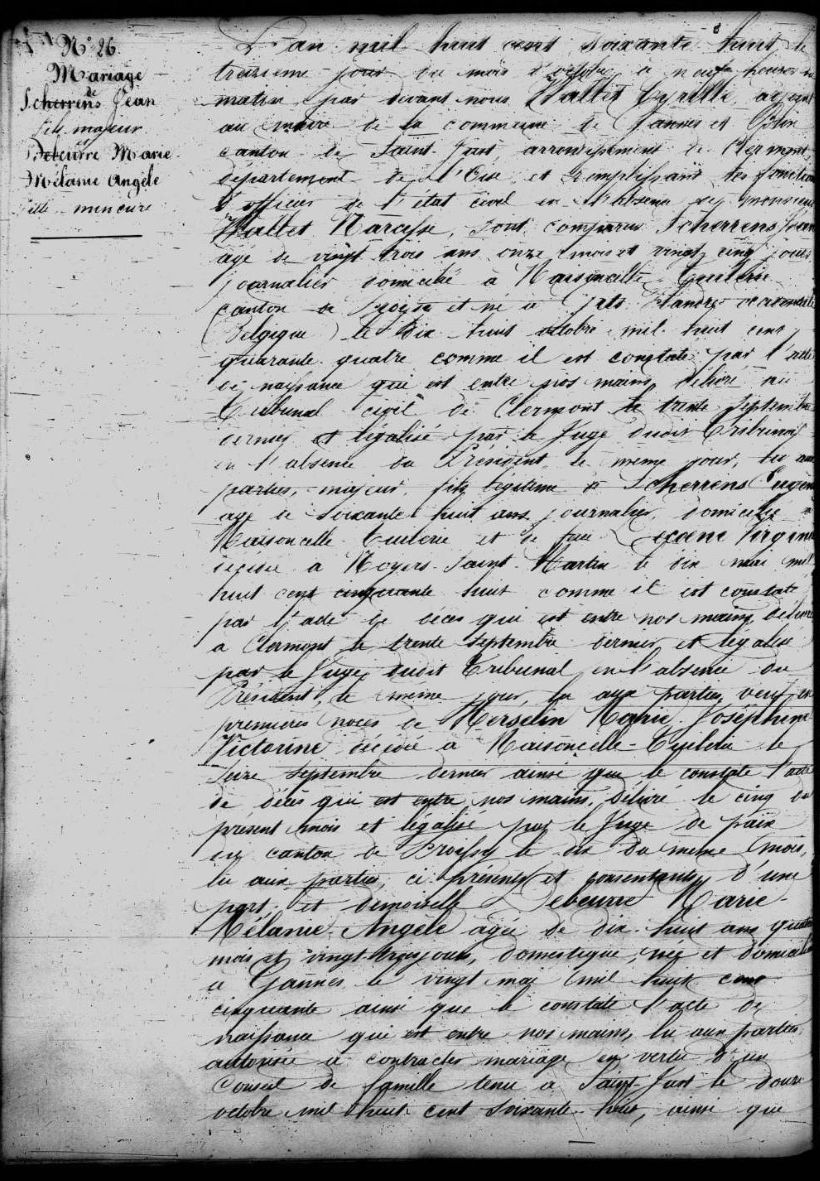 N° 26
Mariage
de
Scherrens Jean
fils majeur
et
Debeurre Marie
Mélanie Angèle
fille mineure
L'an mil huit cent soixante huit le
treizieme jour du mois d'octobre à neuf heures du
matin par devant nous Wallet Cyrille, adjoint
au maire de la commune de Gannes et
canton de Saint-Just arrondissement de Clermont
département de l'Oise et remplissant les fonctions
d'officier de l'état civil en l'absence de monsieur
Wallet Narcisse, sont comparus Scherrens Jean
agé de vingt trois ans onze mois et vingt cinq jours
journalier domicilié à Maisoncelle Tuilerie
canton de Froissy et né à Flandre occidentale
(Belgique) le dix huit octobre mil huit cent
quarante quatre comme il est constaté par l'acte
de naissance qui est entre nos mains, délivré au
Tribunal civil de Clermont le trente Septembre
dernier et légalisé par le Juge dudit Tribunal
en l'absence du Président, le même jour, lu aux
parties, majeur, fils légitime de Scherrens Eugene
agé de soixante huit ans, journalier, domicilié à
Maisoncelle Tuilerie et de feue Virginie
décédée à Noyers-Saint-Martin le dix mai mil
huit cent cinquante huit comme il est constaté
par l'acte de décès qui est entre nos mains délivré
à Clermont le trente septembre dernier et légalisé
par le Juge dudit Tribunal en l'absence du
Président, le même jour, lu aux parties, veuf en
premieres noces de Herselin Marie Joséphine
Victorine décédée à Maisoncelle-Tuilerie le
seize septembre dernier ainsi que le constate l'acte
de décès qui est entre nos mains, délivré le cinq du
présent mois et légalisé par le Juge de paix
du canton de Froissy le dix du même mois,
lu aux parties, ci présents et consentants d'une
part, et demoiselle Debeurre Marie
Mélanie Angèle agée de dix huit ans quatre
mois et vingt trois jours, domestique, née et domiciliée
à Gannes le vingt mai mil huit cent
cinquante ainsi que le constate l'acte de
naissance qui est entre nos mains, lu aux parties
autorisée à contracter mariage en vertu d'un
Conseil de famille tenu à Saint-Just le douze
octobre mil huit cent soixante-huit, ainsi que